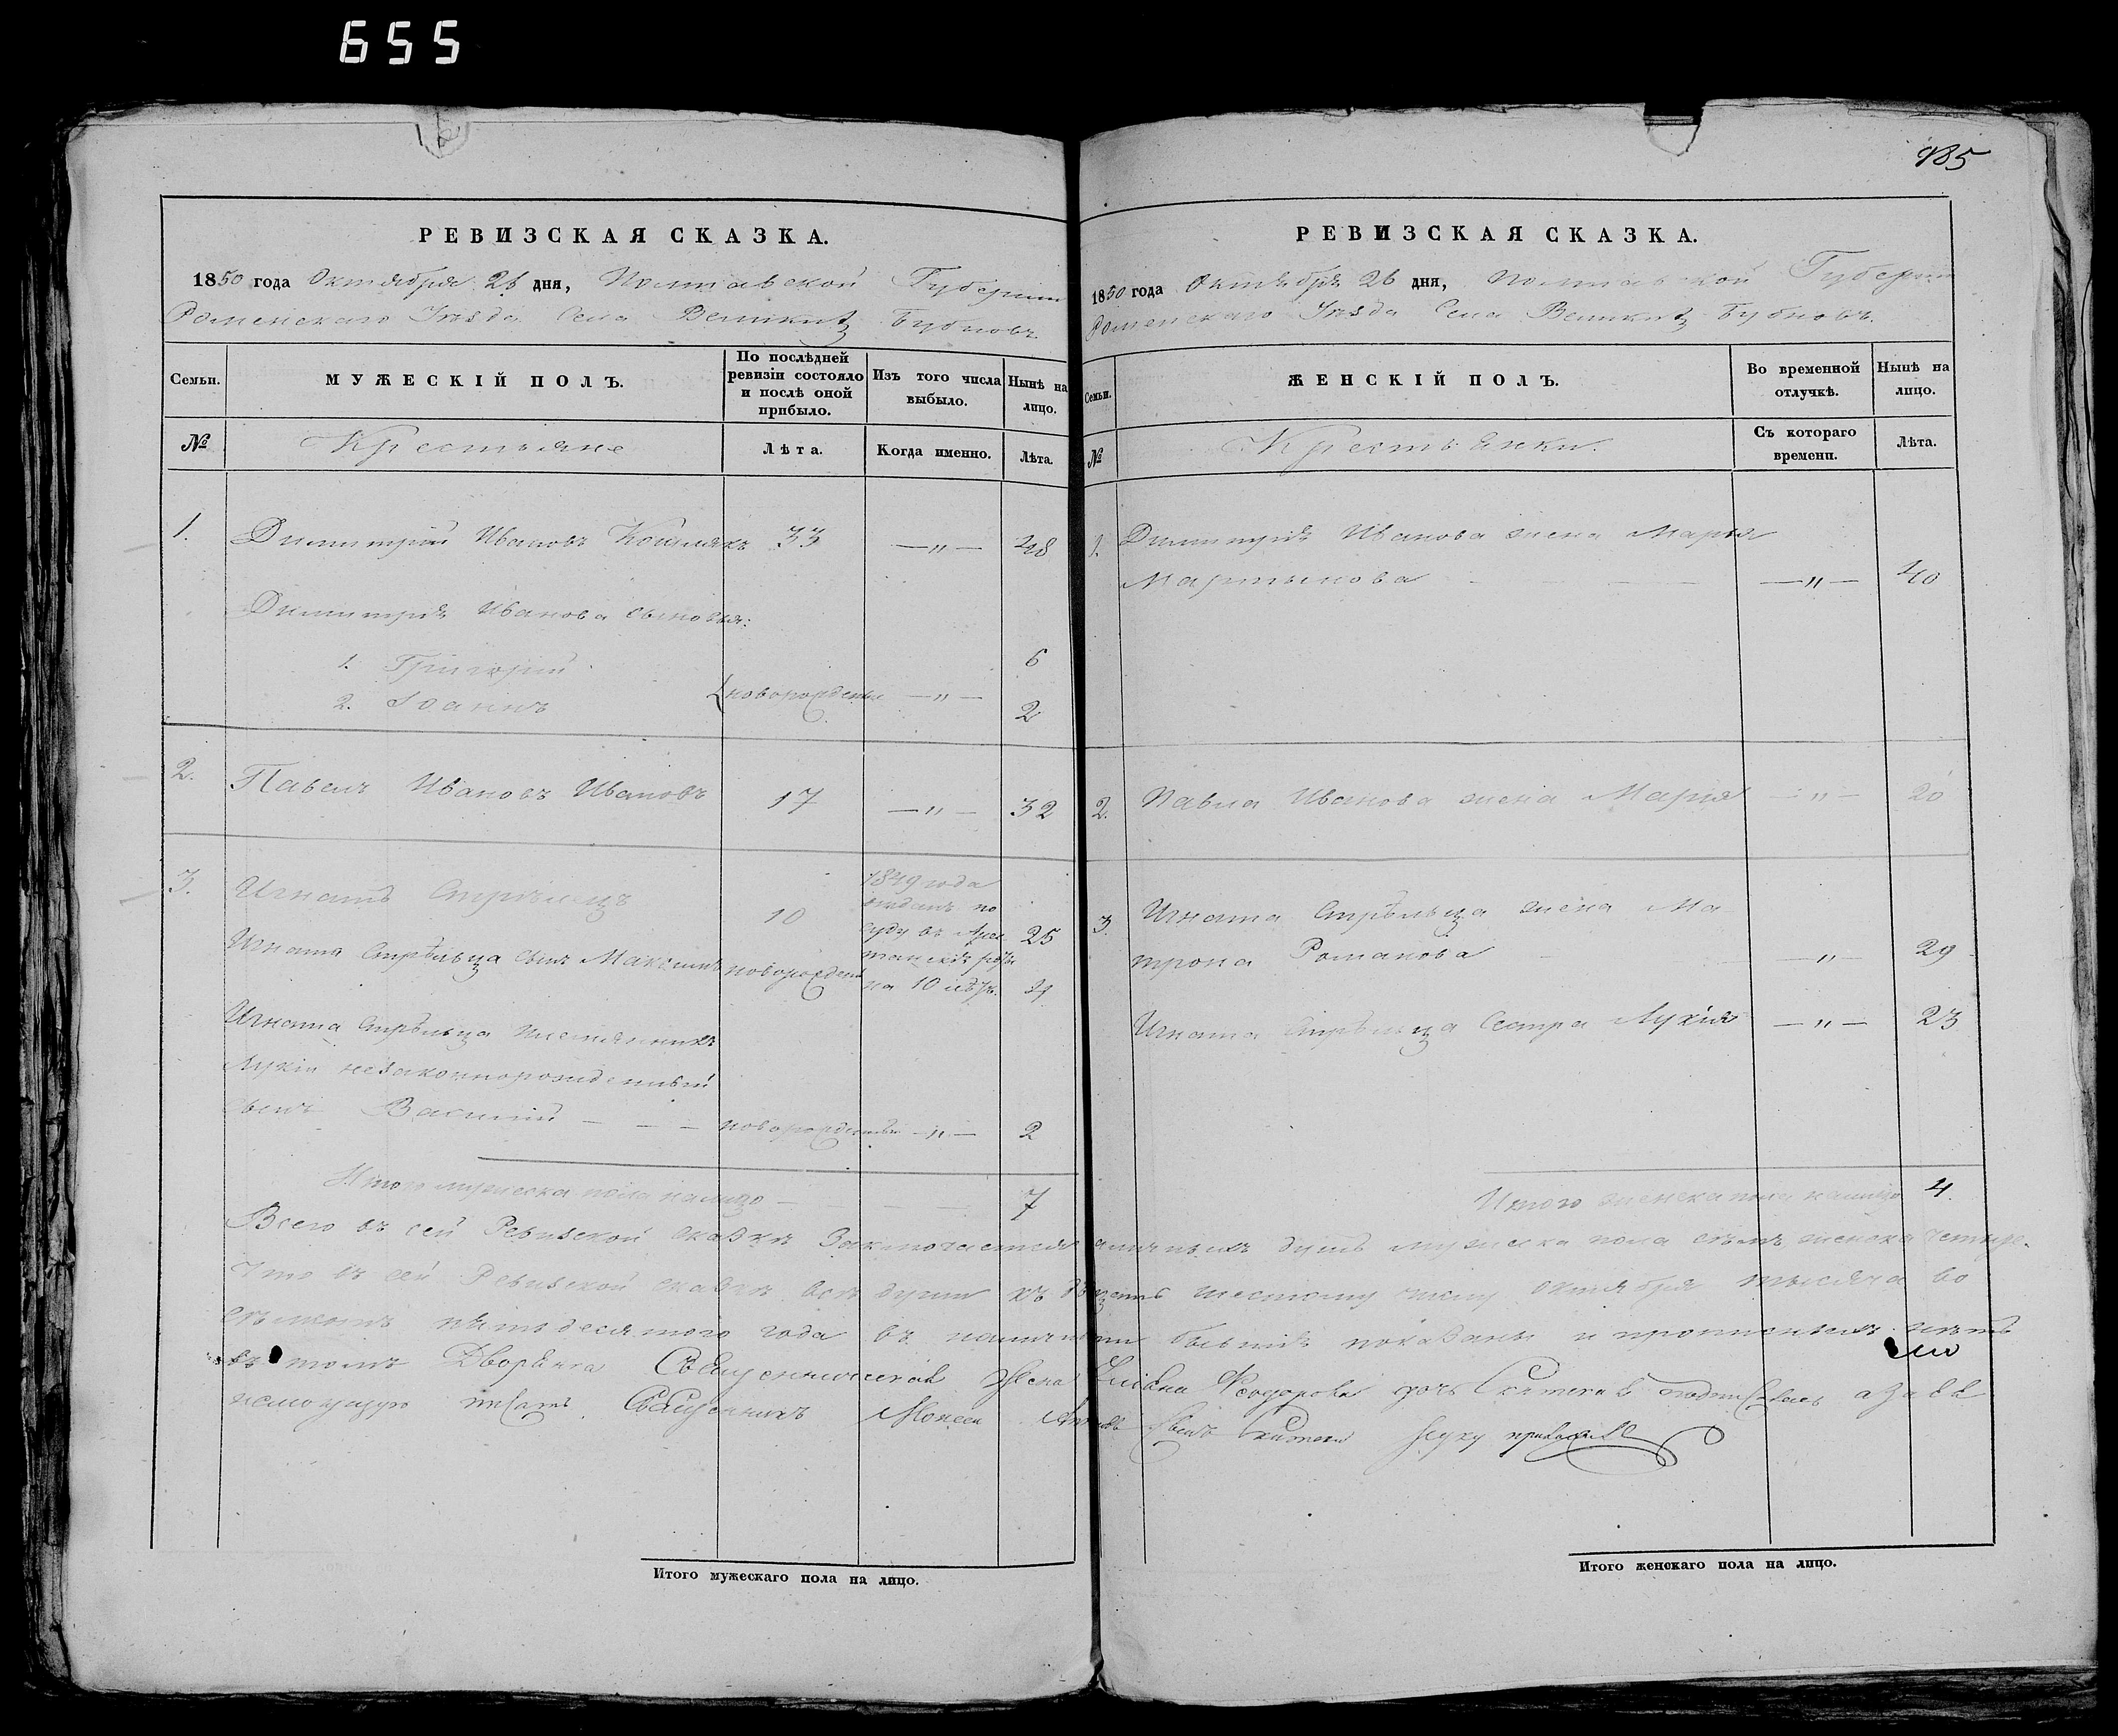 655
985
РЕВИЗСКАЯ СКАЗКА.
1850 года Октября 26 дня, Полтавской Губернии
Роменскаго Уѣзда Села Великихъ Бубновъ
Семьи.
МУЖЕСКІЙ ПОЛЪ.
По послѣдней ревизіи состояло и послѣ оной прибыло.
Изъ того числа выбыло.
Нынѣ на лицо.
№
Крестьяне
Лѣта.
Когда именно.
Лѣта.
1. Димитрій Ивановъ 33 —〃— 48
Димитрія Иванова сыновья:
1. Григорій 6
2. Іоаннъ новорожденные —〃— 2
2. Павелъ Ивановъ Ивановъ 17 —〃— 32
3. Игнатъ Стрѣлецъ 10 1849 года отданъ по суду въ Арестанскія роты на 10 лѣтъ. 25
Игната Стрѣльца сынъ Максимъ новорожденъ
Игната Стрѣльца племянникъ
Лукіи незаконнорожденный
сынъ Василій — — — новорожденный —〃— 2
Итого мужеска пола налицо — 7
РЕВИЗСКАЯ СКАЗКА.
1850 года Октября 26 дня, Полтавской Губерніи
Роменскаго Уѣзда Села Великихъ Бубновъ.
Семьи.
ЖЕНСКІЙ ПОЛЪ.
Во временной отлучкѣ.
Нынѣ на лицо.
№
Крестьянки.
Съ котораго времени.
Лѣта.
1. Димитрія Иванова жена Марья
Мартынова —〃— 40
2. Павла Иванова жена Марія —〃— 20
3. Игната Стрѣльца жена Ма
трона Романова —〃— 29
Игната Стрѣльца сестра Лукія —〃— 23
Итого женска пола налицо 4.
Всего въ сей Ревизской сказкѣ заключается наличныхъ душъ мужеска пола семь женска четыре.
Что въ сей Ревизской сказкѣ всѣ души къ двадцать шестому числу октября тысяча во
семьсотъ пятьдесятого года въ наличности бывшія показаны и прописныхъ нѣтъ
въ томъ Дворянка Священническая жена Феодорова дочь подписалась а за ея
неумѣющую писать Священникъ Моисей сынъ руку приложилъ
Итого мужескаго пола на лицо.
Итого женскаго пола на лицо.